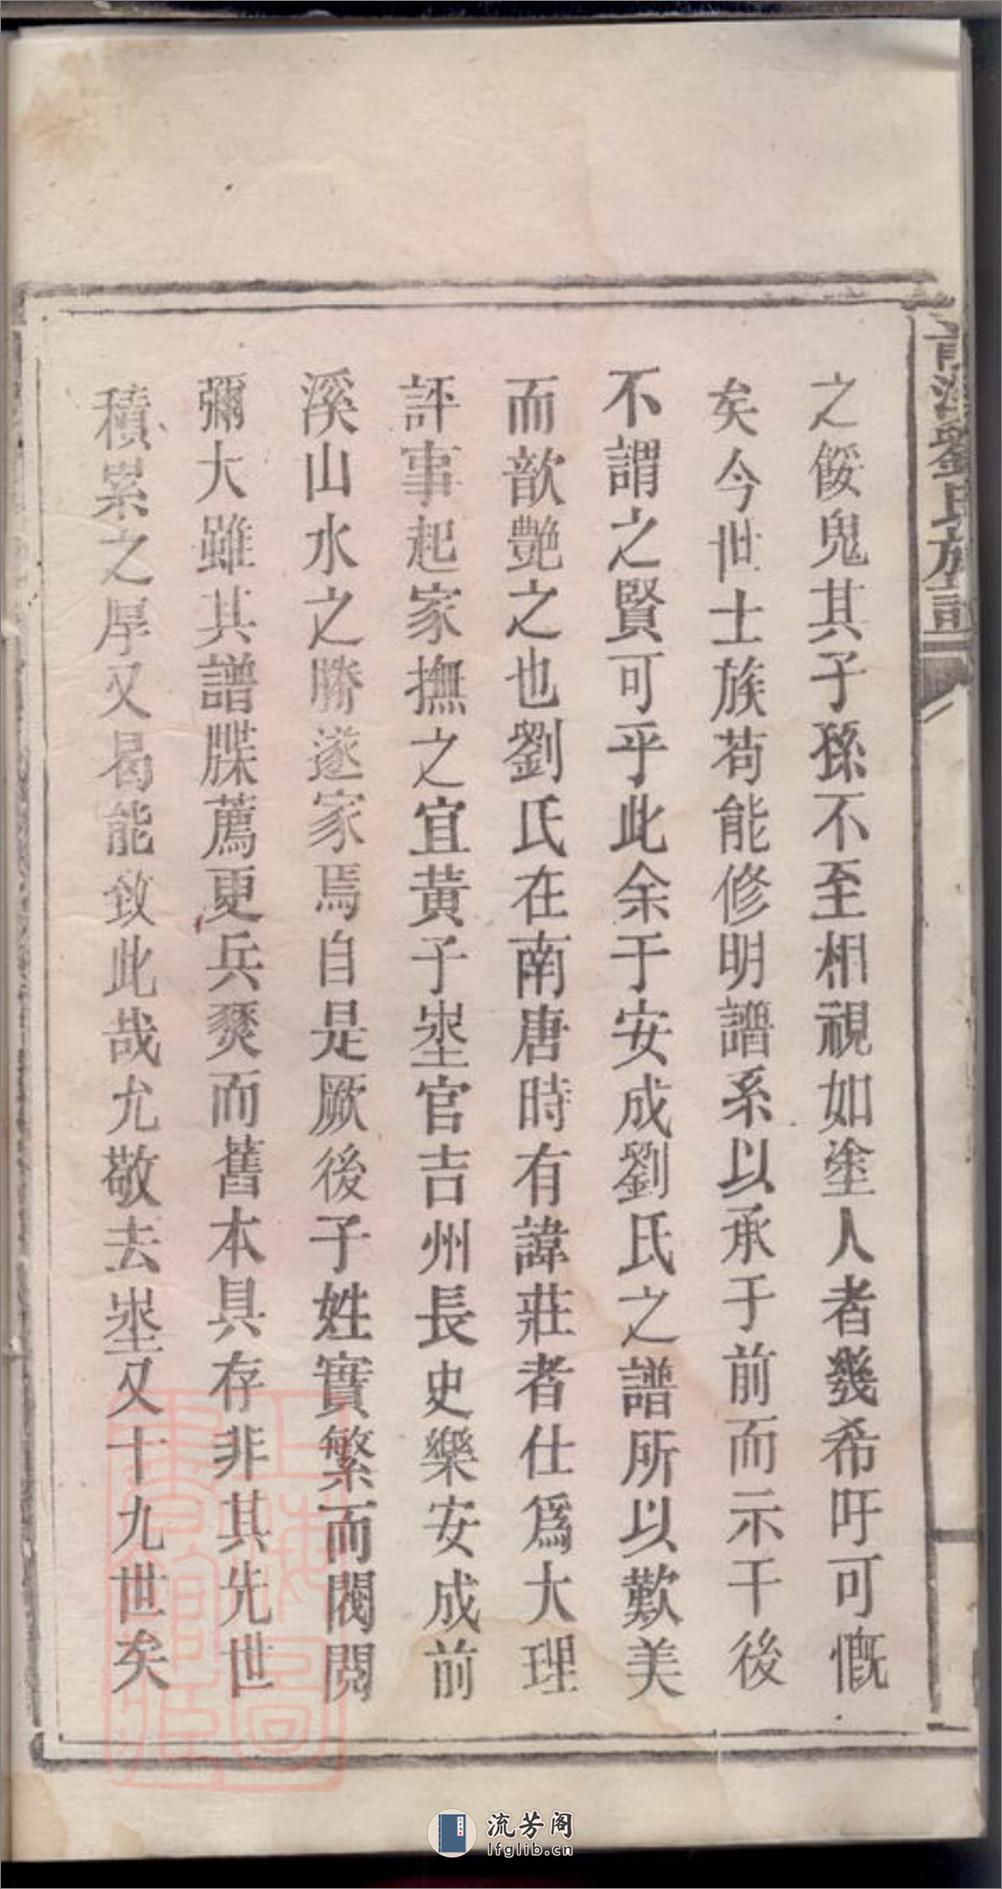 前溪劉氏族譜
之餒鬼其子孫不至相視如塗人者幾希吁可慨
矣今世士族苟能修明譜系以承于前而示于後
不謂之賢可乎此余于安成劉氏之譜所以歎美
而歆艷之也劉氏在南唐時有諱莊者仕爲大理
評事起家撫之宜黃子埊官吉州長史樂安成前
溪山水之勝遂家焉自是厥後子姓實繁而閥閱
彌大雖其譜牒薦更兵燹而舊本具存非其先世
積累之厚又曷能致此哉尤敬去埊又十九世矣
上海圖書館藏
流芳阁
lfglib.cn